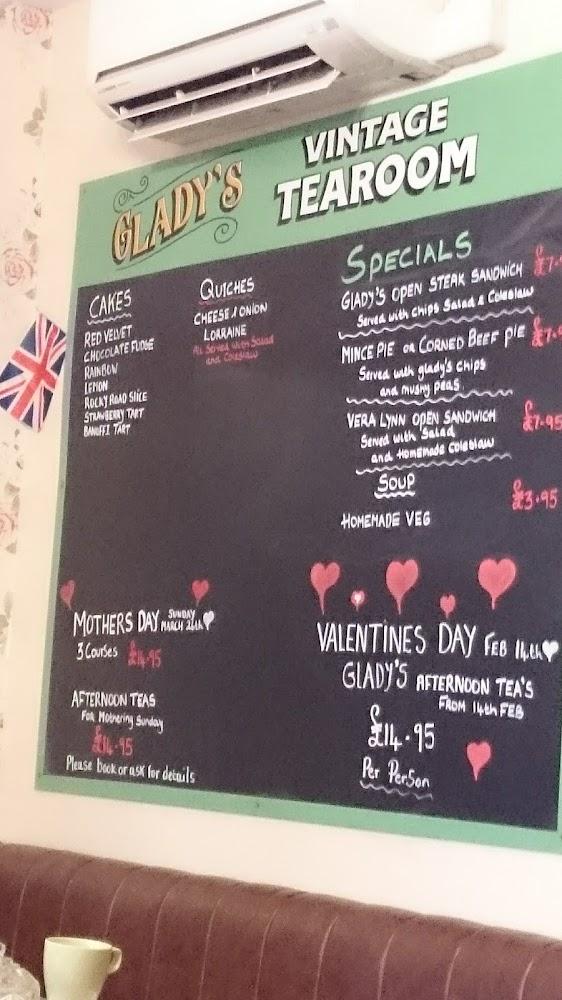 GLADY'S
VINTAGE
TEAROOM
CAKES
RED VELVET
CHOCOLATE FUDGE
RAINBOW
LEMON
ROCKY ROAD SLICE
STRAWBERRY TART
BANOFFI TART
QUICHES
CHEESE / ONION
LORRAINE
All Served with Salad
and Coleslaw
SPECIALS
GLADY'S OPEN STEAK SANDWICH
Served with Chips Salad & Coleslaw
MINCE PIE OR CORNED BEEF PIE
Served with glady's chips
and mushy peas
VERA LYNN OPEN SANDWICH £7.95
Served with Salad
and Homemade Coleslaw
SOUP
£3.95
HOMEMADE VEG
MOTHERS DAY SUNDAY MARCH 26th
3 Courses £14.95
AFTERNOON TEAS
For Mothering Sunday
£14.95
Please book or ask for details
VALENTINES DAY FEB 14th
GLADY'S AFTERNOON TEA'S
FROM 14th FEB
£14.95
Per Person